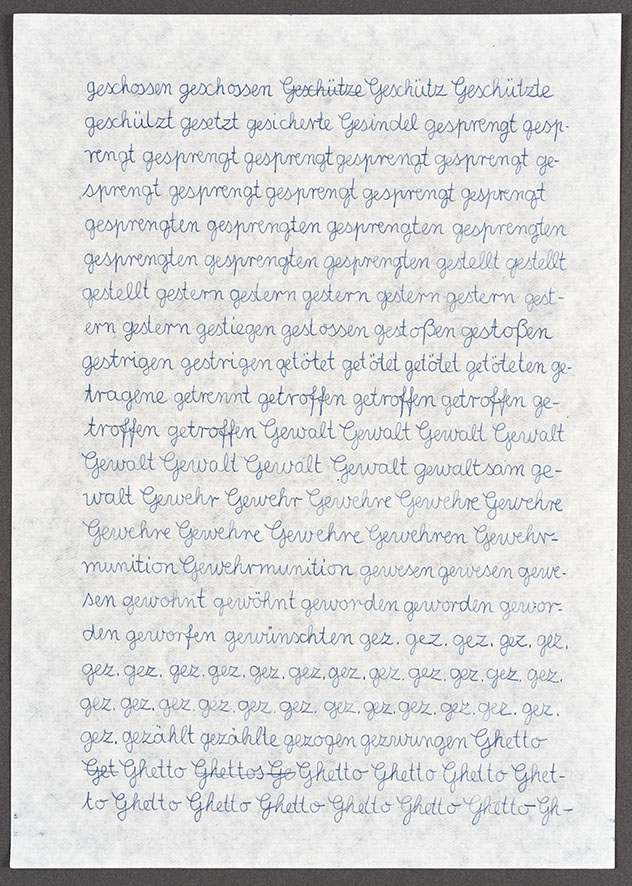 geschossen geschossen Geschütze Geschütz Geschützte
geschützt gesetzt gesicherte Gesindel gesprengt gesp-
rengt gesprengt gesprengt gesprengt gesprengt ge-
sprengt gesprengt gesprengt gesprengt gesprengt
gesprengten gesprengten gesprengten gesprengten
gesprengten gesprengten gesprengten gestellt gestellt
gestellt gestern gestern gestern gestern gestern gest-
ern gestern gestiegen gestossen gestoßen gestoßen
gestrigen gestrigen getötet getötet getötet getöteten ge-
tragene getrennt getroffen getroffen getroffen ge-
troffen getroffen Gewalt Gewalt Gewalt Gewalt
Gewalt Gewalt Gewalt Gewalt gewaltsam ge-
walt Gewehr Gewehr Gewehre Gewehre Gewehre
Gewehre Gewehre Gewehre Gewehren Gewehr-
munition Gewehrmunition gewesen gewesen gewe-
sen gewohnt gewöhnt geworden geworden gewor-
den geworfen gewünschten gez. gez. gez. gez. gez.
gez. gez. gez. gez. gez. gez. gez. gez. gez. gez. gez. gez.
gez. gez. gez. gez. gez. gez. gez. gez. gez. gez. gez. gez.
gez. gezählt gezählte gezogen gezwungen Ghetto
Get Ghetto Ghettos Ge Ghetto Ghetto Ghetto Ghet-
to Ghetto Ghetto Ghetto Ghetto Ghetto Ghetto Gh-